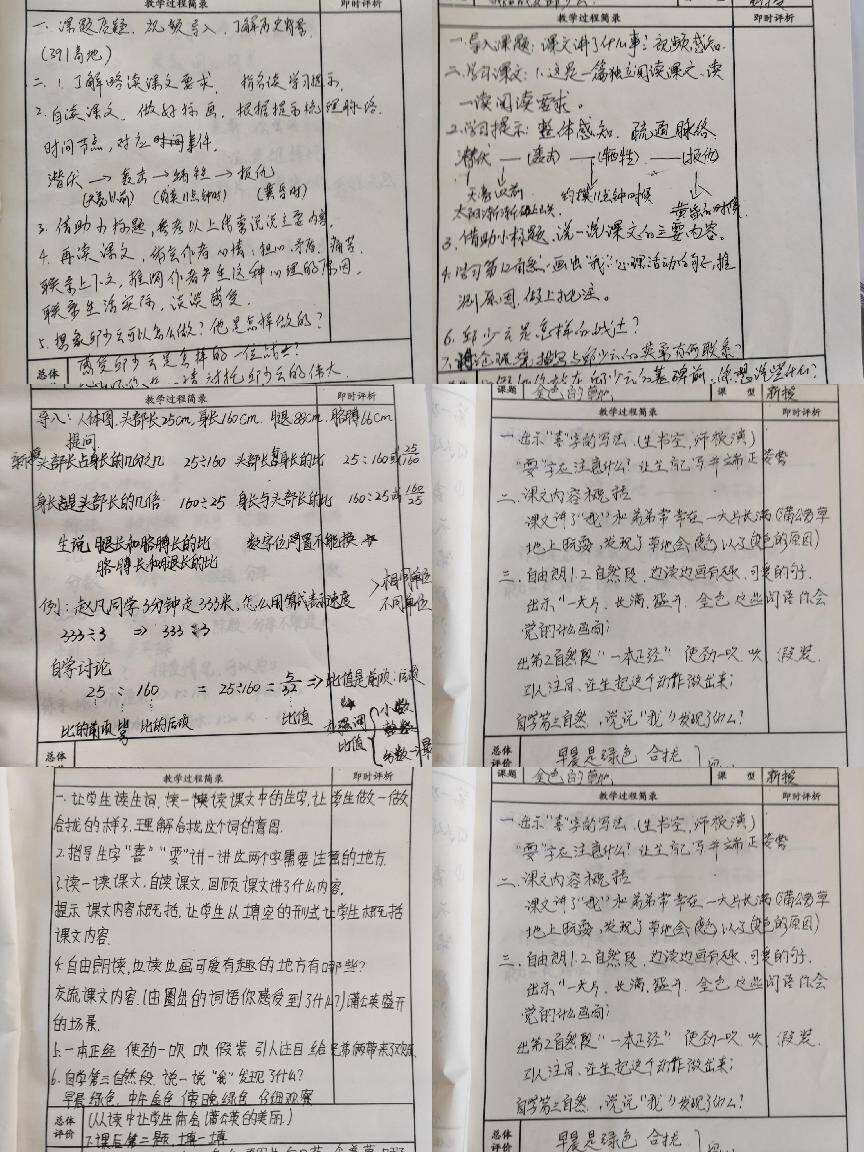 教学过程简录 即时评析
一、课题质疑、视频导入,了解历史背景。
(391高地)
二、1.了解略读课文要求。指名读学习提示。
2.自读课文、做好标画,根据提示梳理脉络。
时间节点,对应时间事件。
潜伏→轰击→牺牲→报仇
(天亮以前) (约莫11点钟时) (黄昏时)
3.借助小标题,参考以上线索说说主要内容。
4.再读课文,体会作者心情:担心、矛盾、痛苦
联系上下文,推测作者产生这种心理的原因。
联系生活实际,谈谈感受。
5.想象邱少云可以怎么做?他是怎样做的?
总体
感受邱少云是怎样的一位战士?
衬托邱少云的伟大
教学过程简录 即时评析
一.导入课题:课文讲了什么事?视频感知。
二.学习课文:1.这是一篇独立阅读课文、读
一读阅读要求。
2.学习提示:整体感知、疏通脉络
潜伏—(轰击)—(牺牲)—(报仇)
天亮以前 约摸11点钟时候 黄昏的时候
太阳渐渐
3.借助小标题、说一说课文的主要内容。
4.学习第12自然,画出"我"心理活动的句子,推
测原因,做上批注。
6.邱少云是怎样的战士?
在邱少云的墓碑前,你想说些什么?
教学过程简录 即时评析
导入:人体图,头部长25cm,身长160cm.腿88cm.胳膊66cm
提问
新授 头部长占身长的几分之几 25÷160 头部长与身长的比 25:160或25/160
身长是头部长的几倍 160÷25 身长与头部长的比 160:25或160/25
生说:腿长和胳膊长的比 数字位置不能换
胳膊长和腿长的比
相同单位
不同单位
例:赵凡同学3分钟走333米,怎么用算式表示速度
333÷3 ⇒ 333:3
自学讨论
25 : 160 = 25÷160 = 5/32 ⇒比值是前项:后项
比的前项 比号 比的后项 比值
强调
比值
小数
整数
分数
总体
课题 金色的草地 课型 新授
教学过程简录 即时评析
一.出示"喜"字的写法(生书空、师板演)
"耍"字应注意什么?让生自己写并端正姿势
二、课文内容概括
课文讲了"我"和弟弟常常在一大片长满(蒲公英草
地上玩耍,发现了草地会(变色)以及(变色的原因)
三、自由朗1.2自然段、边读边画有趣、可爱的句子.
出示"一大片、长满、盛开、金色这些词语你会
觉的什么画面;
出第2自然段"一本正经" 使劲一吹 吹 假装
引人注目、让生把这个动作做出来;
自学第三自然,说说"我"发现了什么?
总体
评价
早晨是绿色 合拢
教学过程简录 即时评析
一.让学生读生词,读一读课文中的生字,让学生做一做
合拢的样子.理解合拢这个词的意思.
2.指导生字"喜""耍"讲一讲这两个字需要注意的地方.
3.读一读课文,自读课文,回顾课文讲了什么内容。
提示课文内容概括,让学生从填空的形式让学生概括
课文内容.
4.自由朗读,边读边画可爱有趣的地方有哪些?
交流课文内容.(由圈出的词语你感受到了什么?)蒲公英盛开
的场景.
5.一本正经 使劲一吹 吹 假装 引人注目 给兄弟俩带来了欢乐
6.自学第三自然段.说一说"我"发现了什么?
早晨绿色 中午金色 傍晚绿色 仔细观察
总体
评价
(从读中让学生体会蒲公英的美丽.)
7.课后第二题,填一填
课题 金色的草地 课型 新授
教学过程简录 即时评析
一.出示"喜"字的写法(生书空、师板演)
"耍"字应注意什么?让生自己写并端正姿势
二、课文内容概括
课文讲了"我"和弟弟常常在一大片长满(蒲公英草
地上玩耍,发现了草地会(变色)以及(变色的原因)
三、自由朗1.2自然段、边读边画有趣、可爱的句子.
出示"一大片、长满、盛开、金色这些词语你会
觉的什么画面;
出第2自然段"一本正经" 使劲一吹 吹 假装
引人注目、让生把这个动作做出来;
自学第三自然,说说"我"发现了什么?
总体
评价
早晨是绿色 合拢